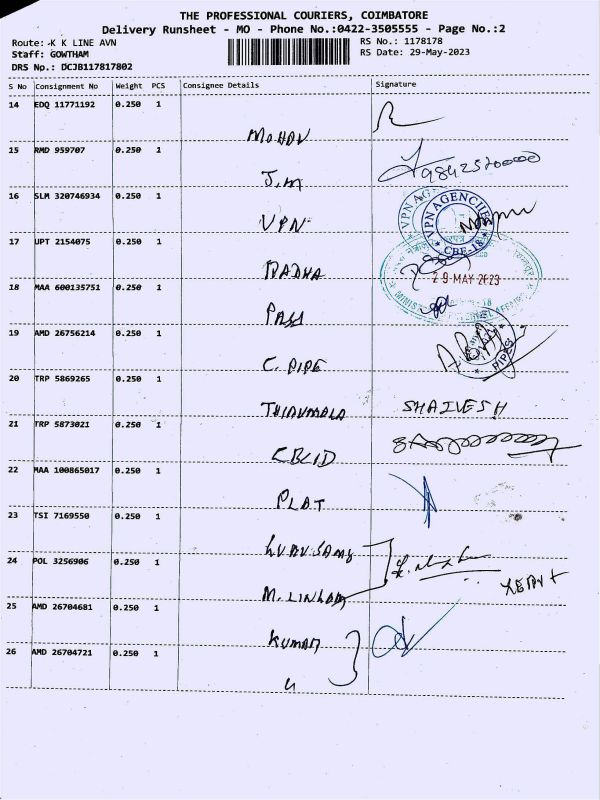 THE PROFESSIONAL COURIERS, COIMBATORE
Delivery Runsheet - MO - Phone No.:0422-3505555 - Page No.:2
Route: K K LINE AVN
RS No.: 1178178
Staff: GOWTHAM
RS Date: 29-May-2023
DRS No.: DCJB117817802
S No Consignment No Weight PCS Consignee Details Signature
14 EDQ 11771192 0.250 1
MOHAN
15 RMD 959707 0.250 1
J.M
9842520000
16 SLM 320746934 0.250 1
VPN
VPN AGENCIES
CBE-18
17 UPT 2154075 0.250 1
RADHA
29 MAY 2023
18 MAA 600135751 0.250 1
PASS
19 AMD 26756214 0.250 1
C. PIPE
PIPES
20 TRP 5869265 0.250 1
THIRUMALA SHAILESH
21 TRP 5873021 0.250 1
22 MAA 100865017 0.250 1
PLAT
23 TSI 7169550 0.250 1
24 POL 3256906 0.250 1
25 AMD 26704681 0.250 1
KUMAR
26 AMD 26704721 0.250 1